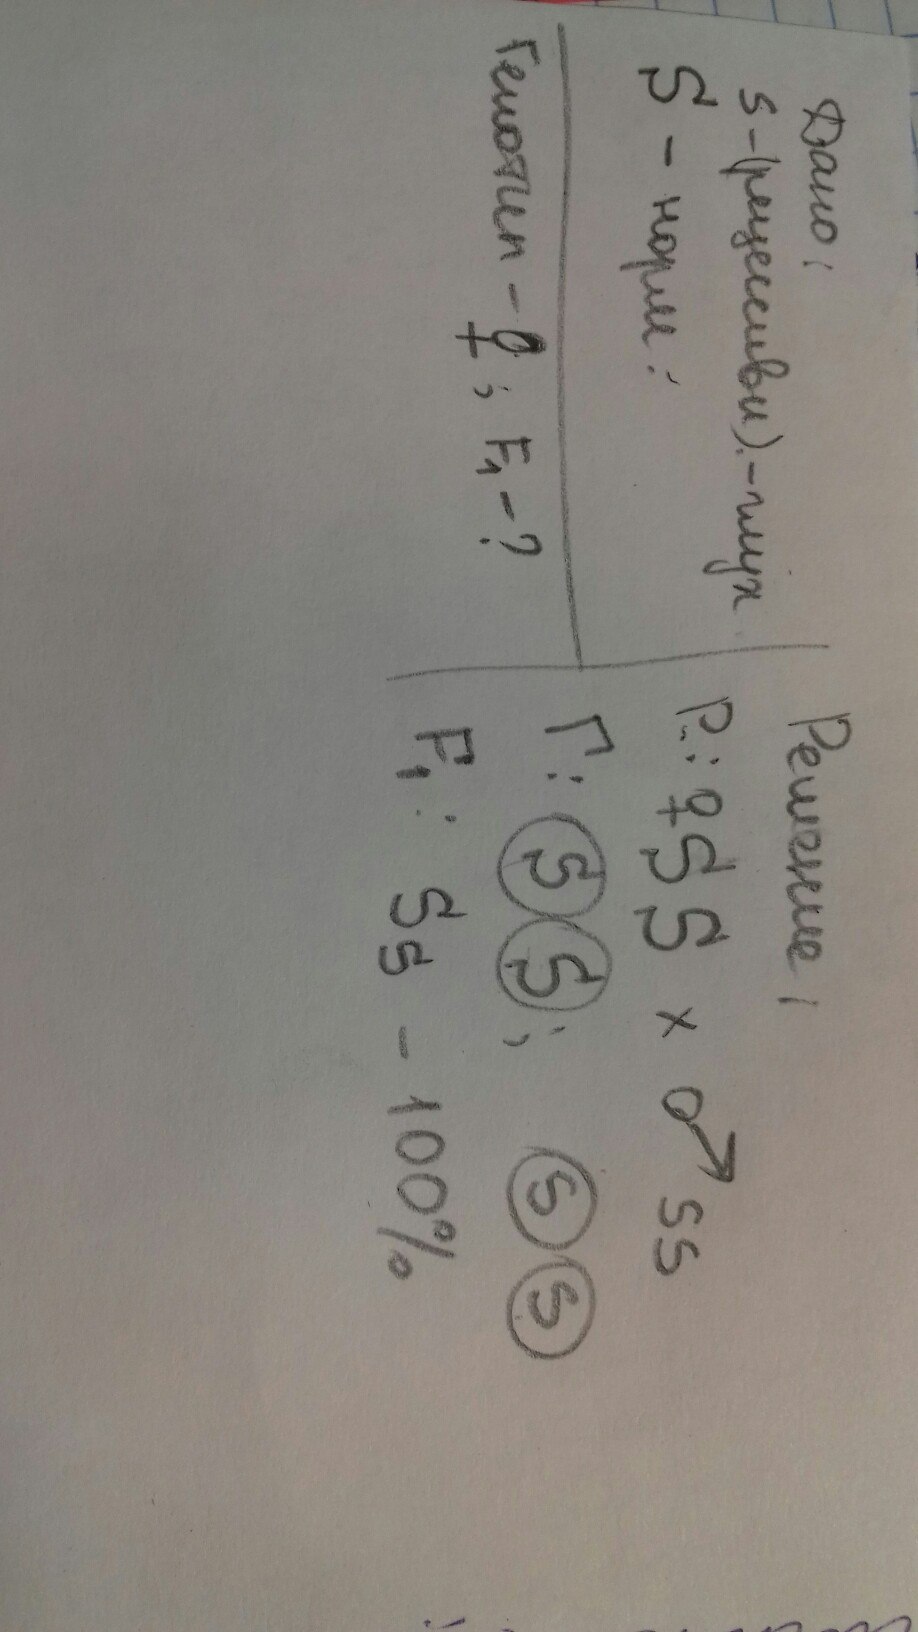 Дано:
s-(рецессивн).-глух
S - норм.
Генотип - ♀; F₁ - ?
Решение:
P.: ♀SS x ♂ss
Г: S S; s s
F₁: Ss - 100%